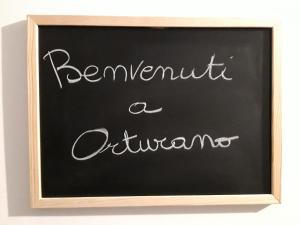 Benvenuti
a
Orturano